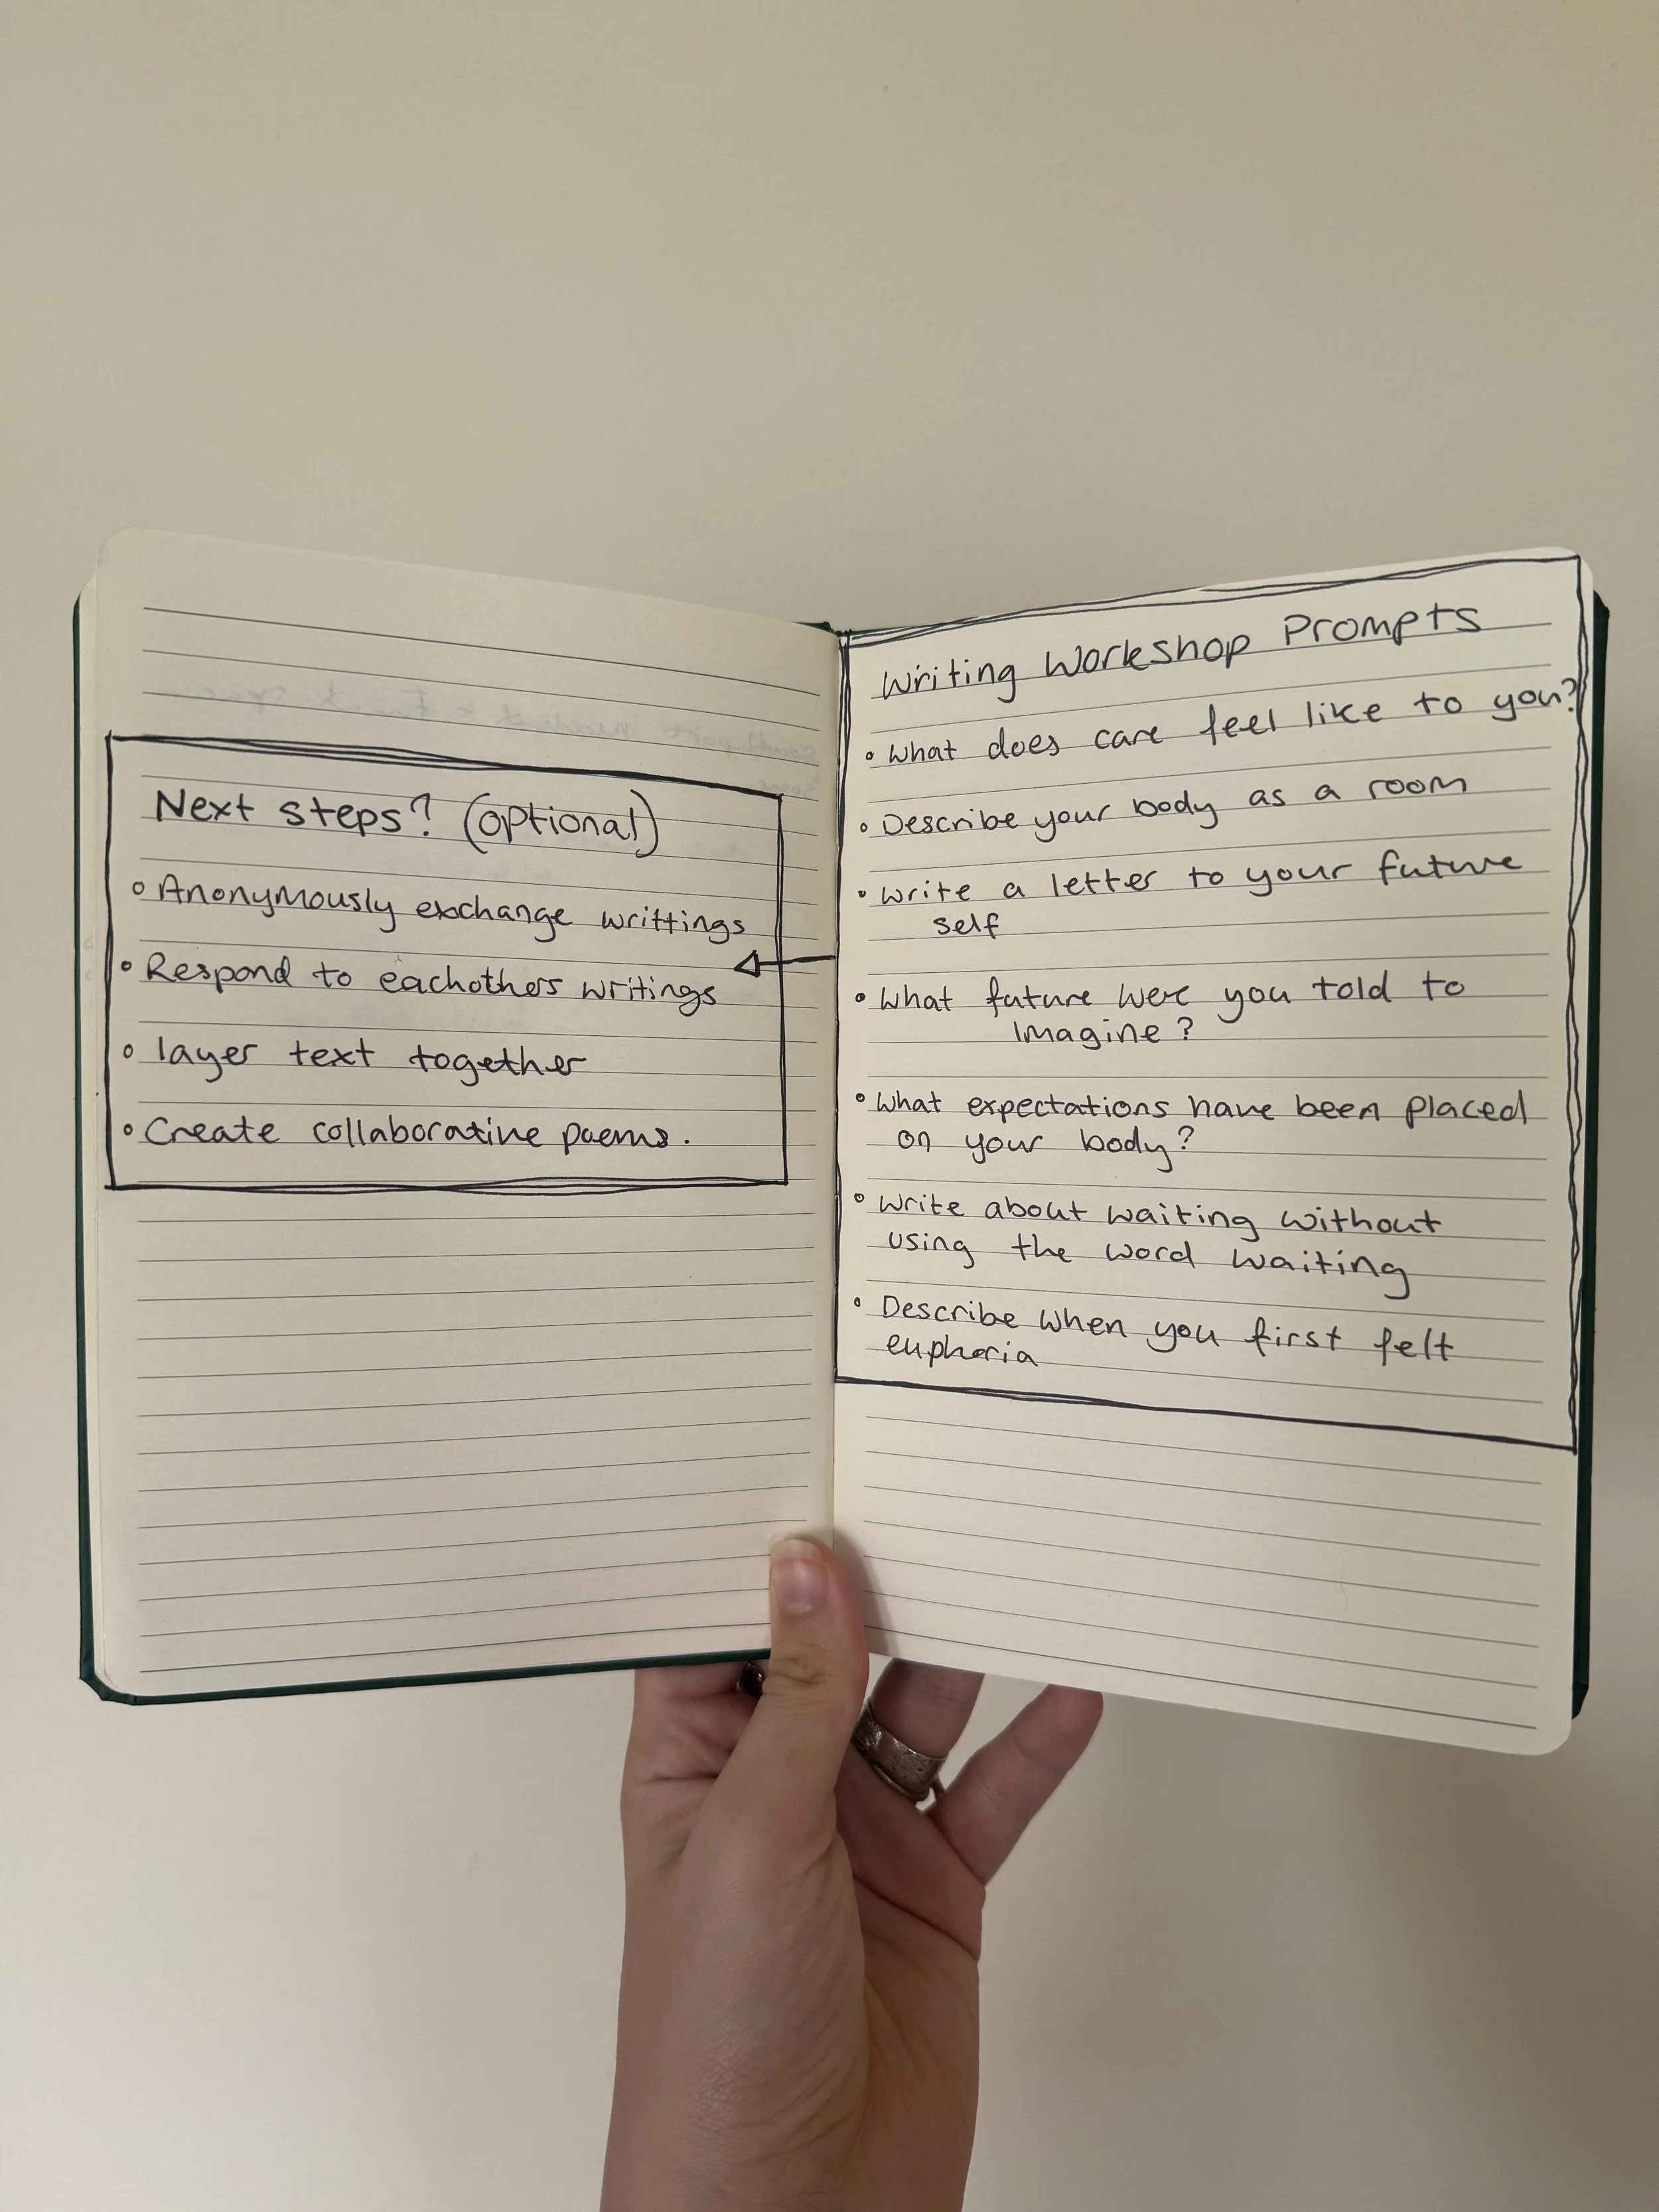 Next steps? (optional)
Anonymously exchange writtings
Respond to eachothers writings
layer text together
Create collaborative poems.
Writing Workshop Prompts
What does care feel like to you?
Describe your body as a room
Write a letter to your future
self
What future were you told to
Imagine?
What expectations have been placed
on your body?
Write about waiting without
using the word waiting
Describe when you first felt
euphoria